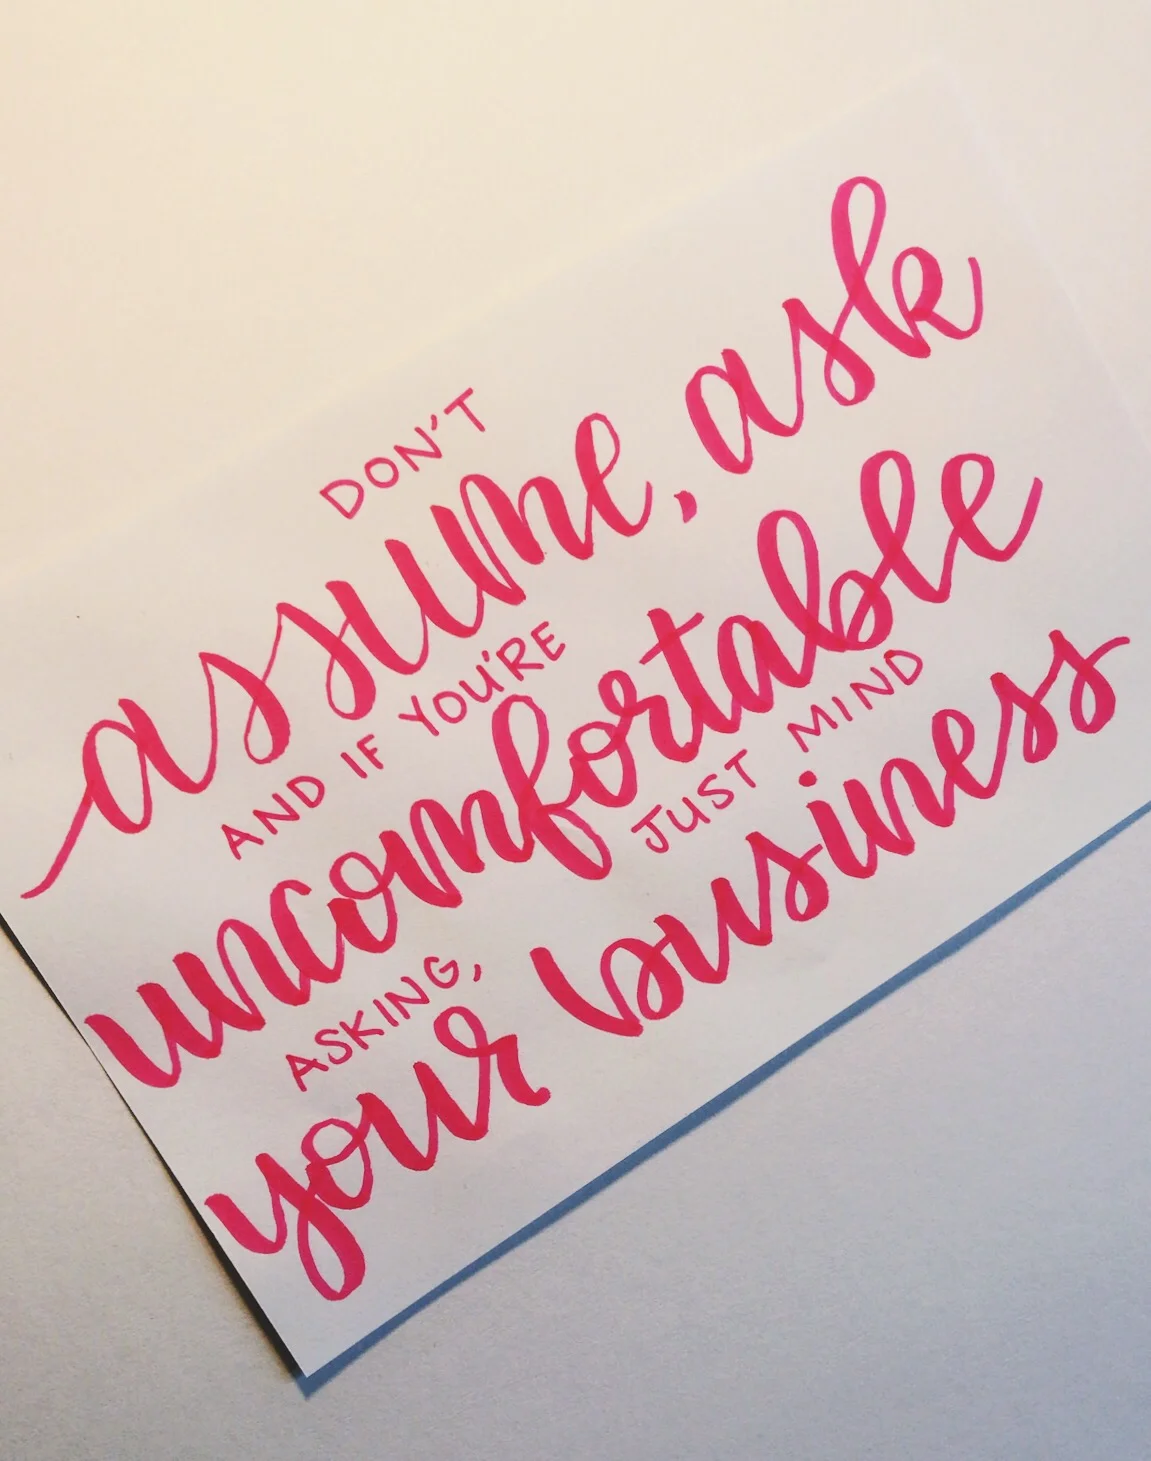 DON'T
assume, ask
AND IF YOU'RE
uncomfortable
ASKING, JUST MIND
your business